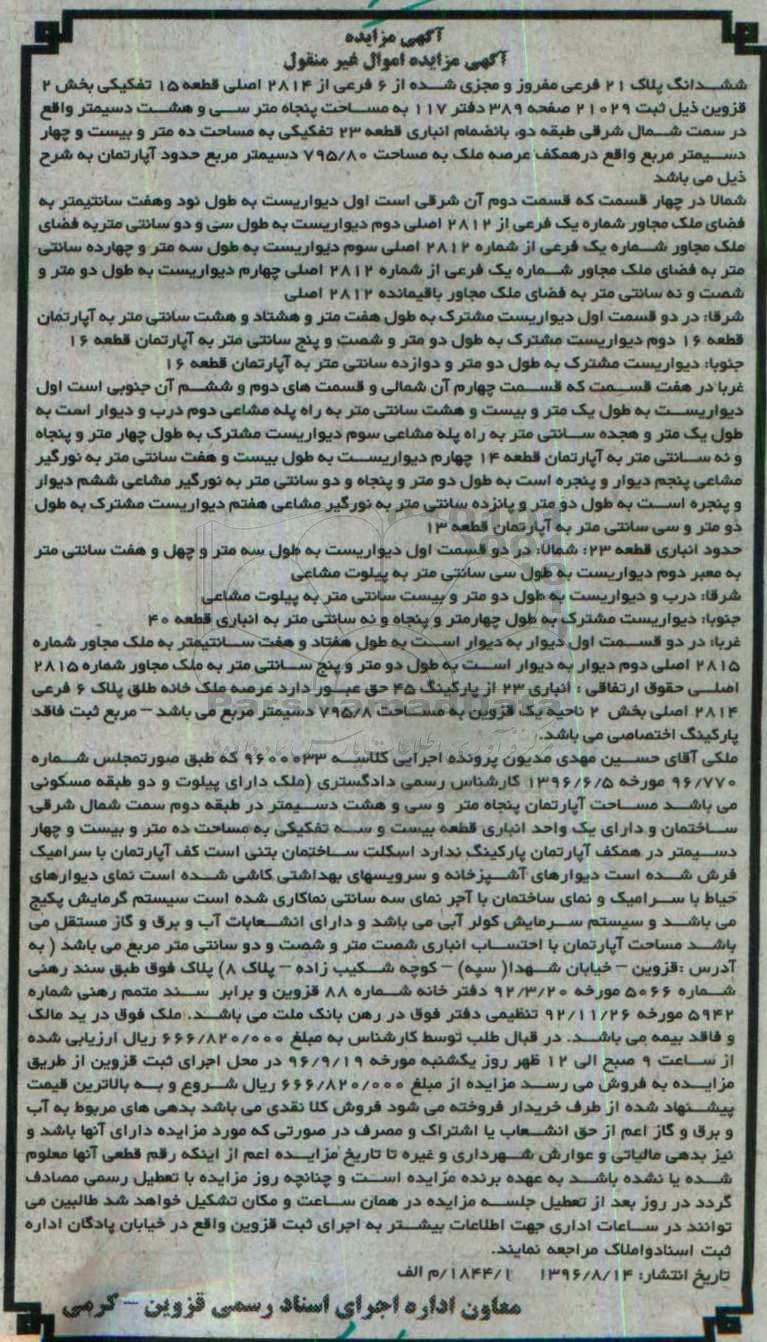 آگهی مزایده
آگهی مزایده اموال غیر منقول
ششدانگ پلاک ۲۱ فرعی مفروز و مجزی شده از ۶ فرعی از ۲۸۱۴ اصلی قطعه ۱۵ تفکیکی بخش ۲
قزوین ذیل ثبت ۲۱۰۲۹ صفحه ۳۸۹ دفتر ۱۱۷ به مساحت پنجاه متر سی و هشت دسیمتر واقع
در سمت شمال شرقی طبقه دو، بانضمام انباری قطعه ۲۳ تفکیکی به مساحت ده متر و بیست و چهار
دسیمتر مربع واقع درهمکف عرصه ملک به مساحت ۷۹۵/۸۰ دسیمتر مربع حدود آپارتمان به شرح
ذیل می باشد
شمالا در چهار قسمت که قسمت دوم آن شرقی است اول دیواریست به طول نود وهفت سانتیمتر به
فضای ملک مجاور شماره یک فرعی از ۲۸۱۲ اصلی دوم دیواریست به طول سی و دو سانتی متربه فضای
ملک مجاور شماره یک فرعی از شماره ۲۸۱۲ اصلی سوم دیواریست به طول سه متر و چهارده سانتی
متر به فضای ملک مجاور شماره یک فرعی از شماره ۲۸۱۲ اصلی چهارم دیواریست به طول دو متر و
شصت و نه سانتی متر به فضای ملک مجاور باقیمانده ۲۸۱۲ اصلی
شرقا: در دو قسمت اول دیواریست مشترک به طول هفت متر و هشتاد و هشت سانتی متر به آپارتمان
قطعه ۱۶ دوم دیواریست مشترک به طول دو متر و شصت و پنج سانتی متر به آپارتمان قطعه ۱۶
جنوبا: دیواریست مشترک به طول دو متر و دوازده سانتی متر به آپارتمان قطعه ۱۶
غربا در هفت قسمت که قسمت چهارم آن شمالی و قسمت های دوم و ششم آن جنوبی است اول
دیواریست به طول یک متر و بیست و هشت سانتی متر به راه پله مشاعی دوم درب و دیوار است به
طول یک متر و هجده سانتی متر به راه پله مشاعی سوم دیواریست مشترک به طول چهار متر و پنجاه
و نه سانتی متر به آپارتمان قطعه ۱۴ چهارم دیواریست به طول بیست و هفت سانتی متر به نورگیر
مشاعی پنجم دیوار و پنجره است به طول دو متر و پنجاه و دو سانتی متر به نورگیر مشاعی ششم دیوار
و پنجره است به طول دو متر و پانزده سانتی متر به نورگیر مشاعی هفتم دیواریست مشترک به طول
دو متر و سی سانتی متر به آپارتمان قطعه ۱۳
حدود انباری قطعه ۲۳: شمالا: در دو قسمت اول دیواریست به طول سه متر و چهل و هفت سانتی متر
به معبر دوم دیواریست به طول سی سانتی متر به پیلوت مشاعی
شرقا: درب و دیواریست به طول دو متر و بیست سانتی متر به پیلوت مشاعی
جنوبا: دیواریست مشترک به طول چهارمتر و پنجاه و نه سانتی متر به انباری قطعه ۴۰
غربا: در دو قسمت اول دیوار به دیوار است به طول هفتاد و هفت سانتیمتر به ملک مجاور شماره
۲۸۱۵ اصلی دوم دیوار به دیوار است به طول دو متر و پنج سانتی متر به ملک مجاور شماره ۲۸۱۵
اصلی حقوق ارتفاقی : انباری ۲۳ از پارکینگ ۴۵ حق عبور دارد عرصه ملک خانه طلق پلاک ۶ فرعی
۲۸۱۴ اصلی بخش ۲ ناحیه یک قزوین به مساحت ۷۹۵/۸ دسیمتر مربع می باشد – مربع ثبت فاقد
پارکینگ اختصاصی می باشد.
ملکی آقای حسین مهدی مدیون پرونده اجرایی کلاسه ۹۶۰۰۰۳۳ که طبق صورتمجلس شماره
۹۶/۷۷۰ مورخه ۱۳۹۶/۶/۵ کارشناس رسمی دادگستری (ملک دارای پیلوت و دو طبقه مسکونی
می باشد مساحت آپارتمان پنجاه متر و سی و هشت دسیمتر در طبقه دوم سمت شمال شرقی
ساختمان و دارای یک واحد انباری قطعه بیست و سه تفکیکی به مساحت ده متر و بیست و چهار
دسیمتر در همکف آپارتمان پارکینگ ندارد اسکلت ساختمان بتنی است کف آپارتمان با سرامیک
فرش شده است دیوارهای آشپزخانه و سرویسهای بهداشتی کاشی شده است نمای دیوارهای
حیاط با سرامیک و نمای ساختمان با آجر نمای سه سانتی نماکاری شده است سیستم گرمایش پکیج
می باشد و سیستم سرمایش کولر آبی می باشد و دارای انشعابات آب و برق و گاز مستقل می
باشد مساحت آپارتمان با احتساب انباری شصت متر و شصت و دو سانتی متر مربع می باشد ( به
آدرس :قزوین – خیابان شهدا( سپه) – کوچه شکیب زاده – پلاک ۸) پلاک فوق طبق سند رهنی
شماره ۵۰۶۶ مورخه ۹۲/۳/۲۰ دفتر خانه شماره ۸۸ قزوین و برابر سند متمم رهنی شماره
۵۹۴۲ مورخه ۹۲/۱۱/۲۶ تنظیمی دفتر فوق در رهن بانک ملت می باشد. ملک فوق در ید مالک
و فاقد بیمه می باشد. در قبال طلب توسط کارشناس به مبلغ ۶۶۶/۸۲۰/۰۰۰ ریال ارزیابی شده
از ساعت ۹ صبح الی ۱۲ ظهر روز یکشنبه مورخه ۹۶/۹/۱۹ در محل اجرای ثبت قزوین از طریق
مزایده به فروش می رسد مزایده از مبلغ ۶۶۶/۸۲۰/۰۰۰ ریال شروع و به بالاترین قیمت
پیشنهاد شده از طرف خریدار فروخته می شود فروش کلا نقدی می باشد بدهی های مربوط به آب
و برق و گاز اعم از حق انشعاب یا اشتراک و مصرف در صورتی که مورد مزایده دارای آنها باشد و
نیز بدهی مالیاتی و عوارض شهرداری و غیره تا تاریخ مزایده اعم از اینکه رقم قطعی آنها معلوم
شده یا نشده باشد به عهده برنده مزایده است و چنانچه روز مزایده با تعطیل رسمی مصادف
گردد در روز بعد از تعطیل جلسه مزایده در همان ساعت و مکان تشکیل خواهد شد طالبین می
توانند در ساعات اداری جهت اطلاعات بیشتر به اجرای ثبت قزوین واقع در خیابان پادگان اداره
ثبت اسنادواملاک مراجعه نمایند.
تاریخ انتشار: ۱۳۹۶/۸/۱۴ ۱۸۴۴/۱/م الف
معاون اداره اجرای اسناد رسمی قزوین – کرمی